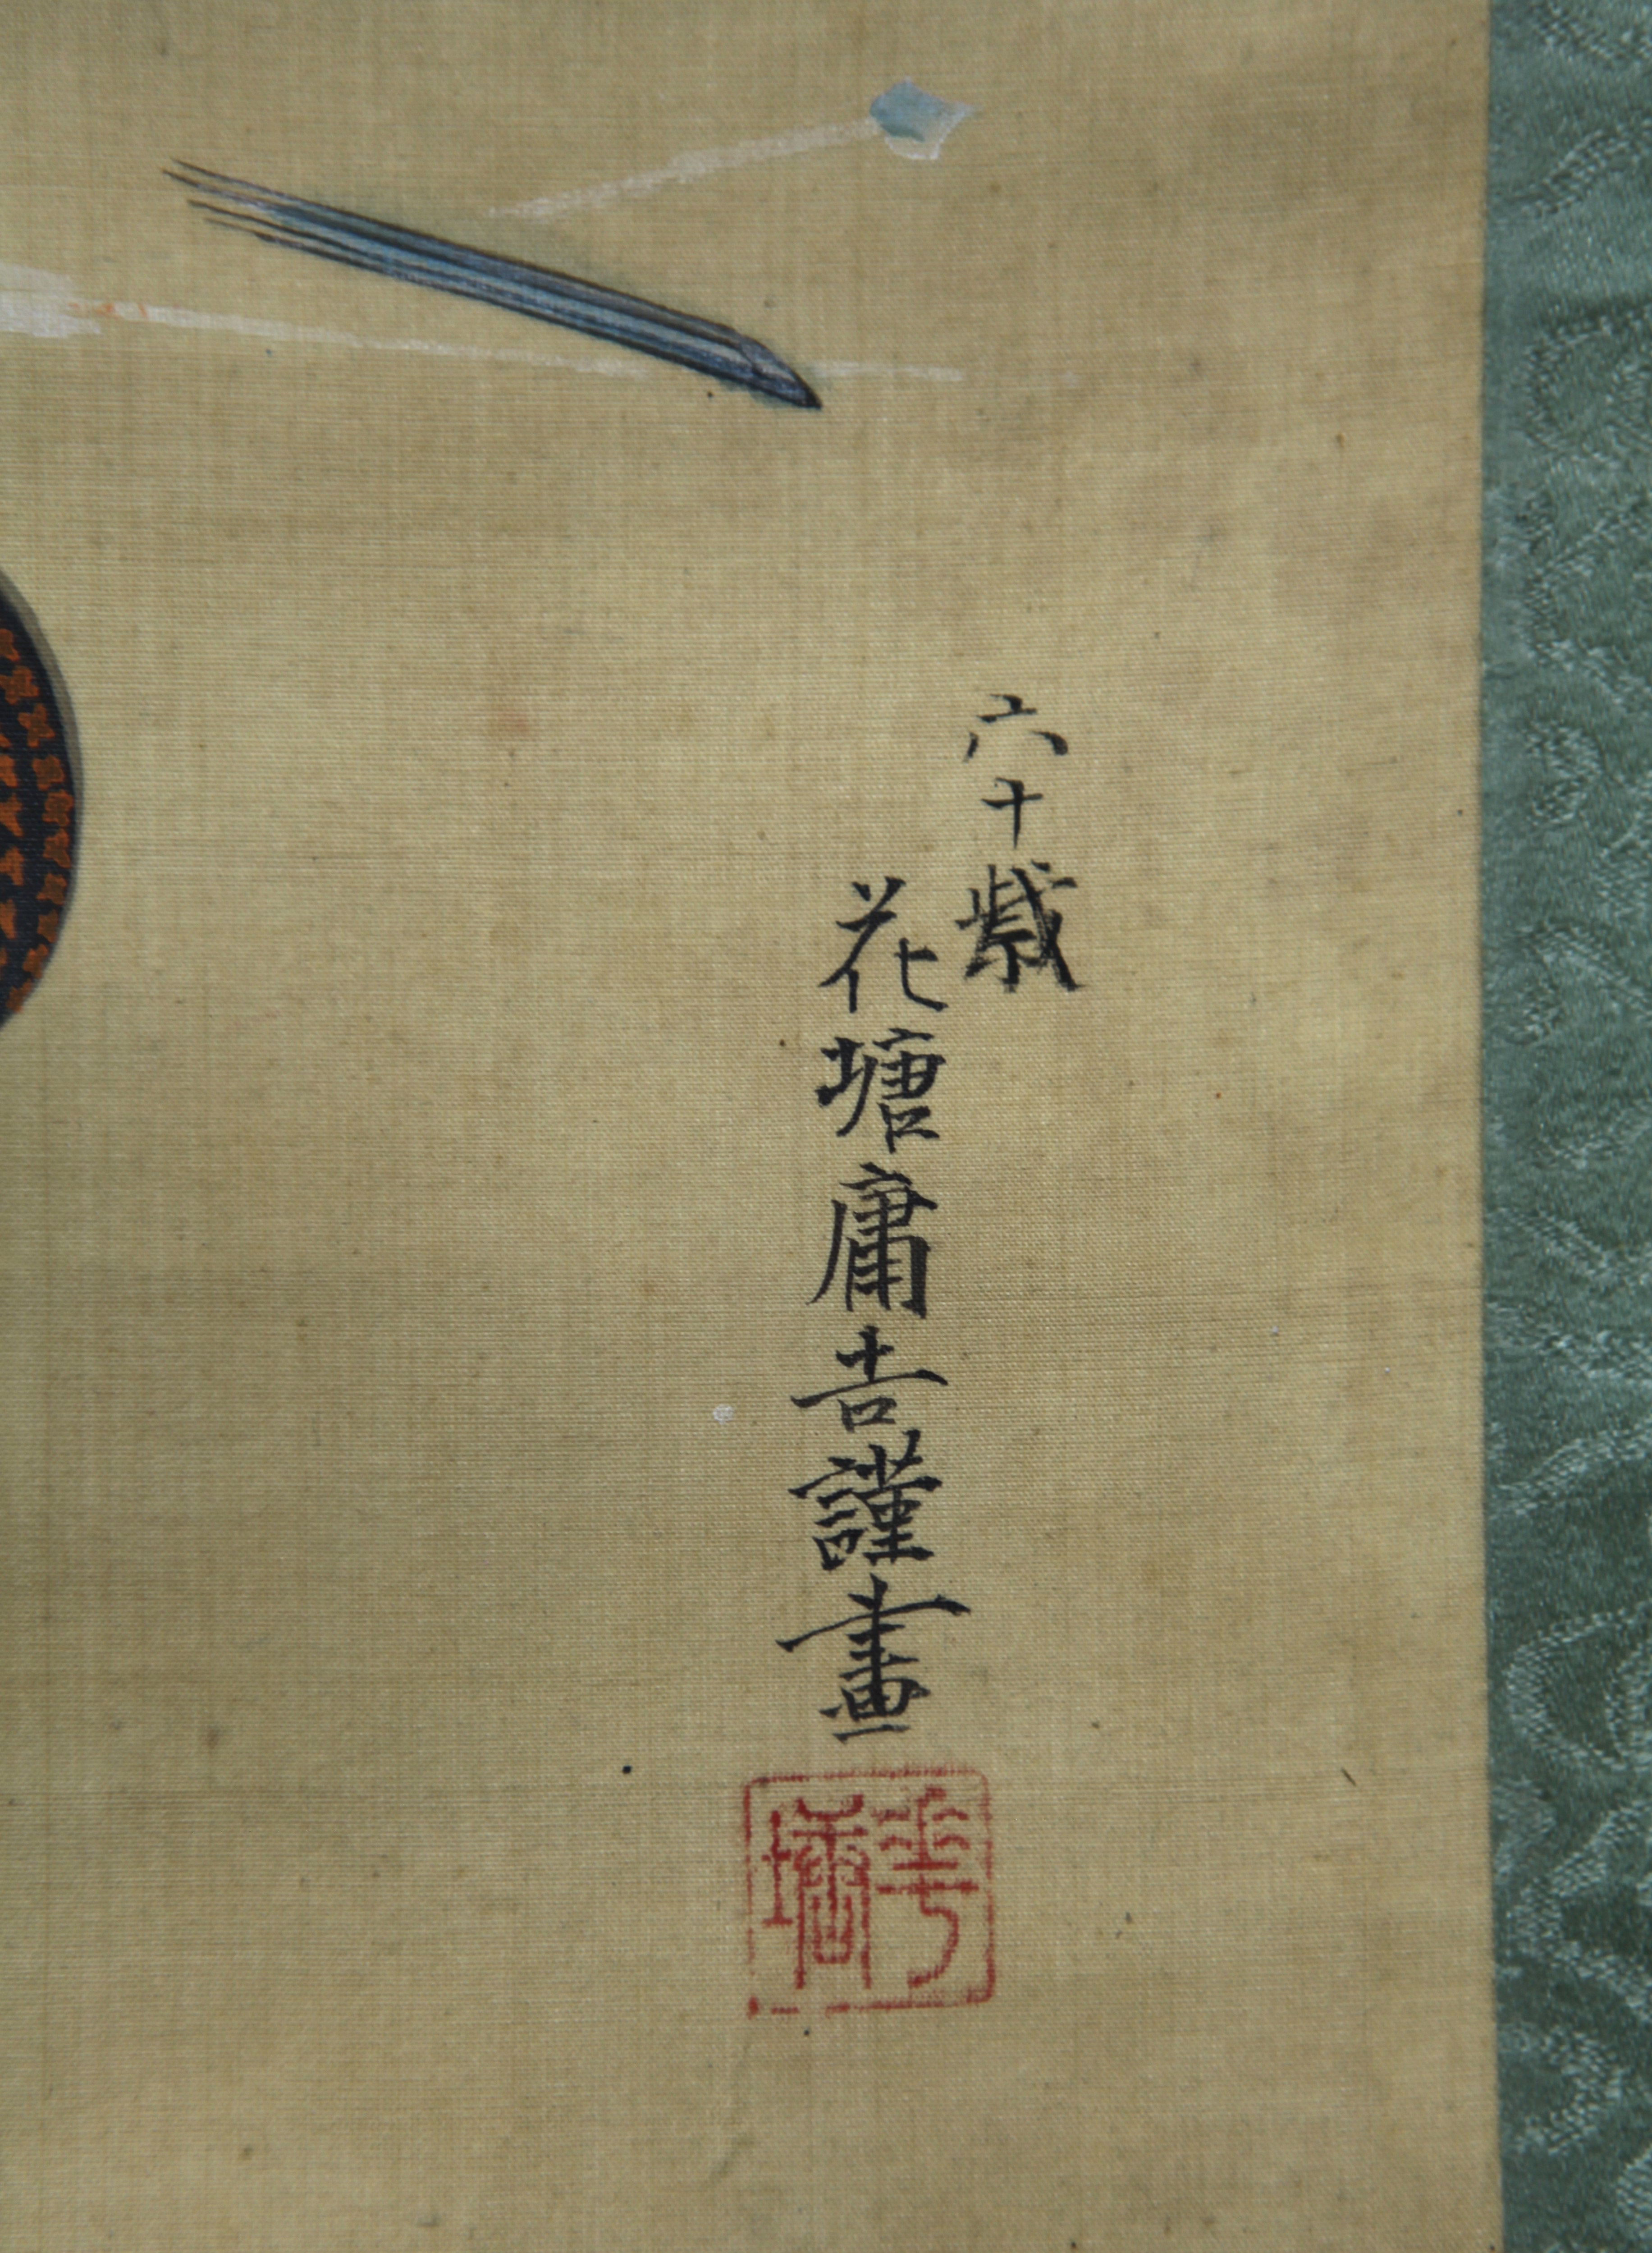 六十歳
花塘庸吉謹畫
華塘